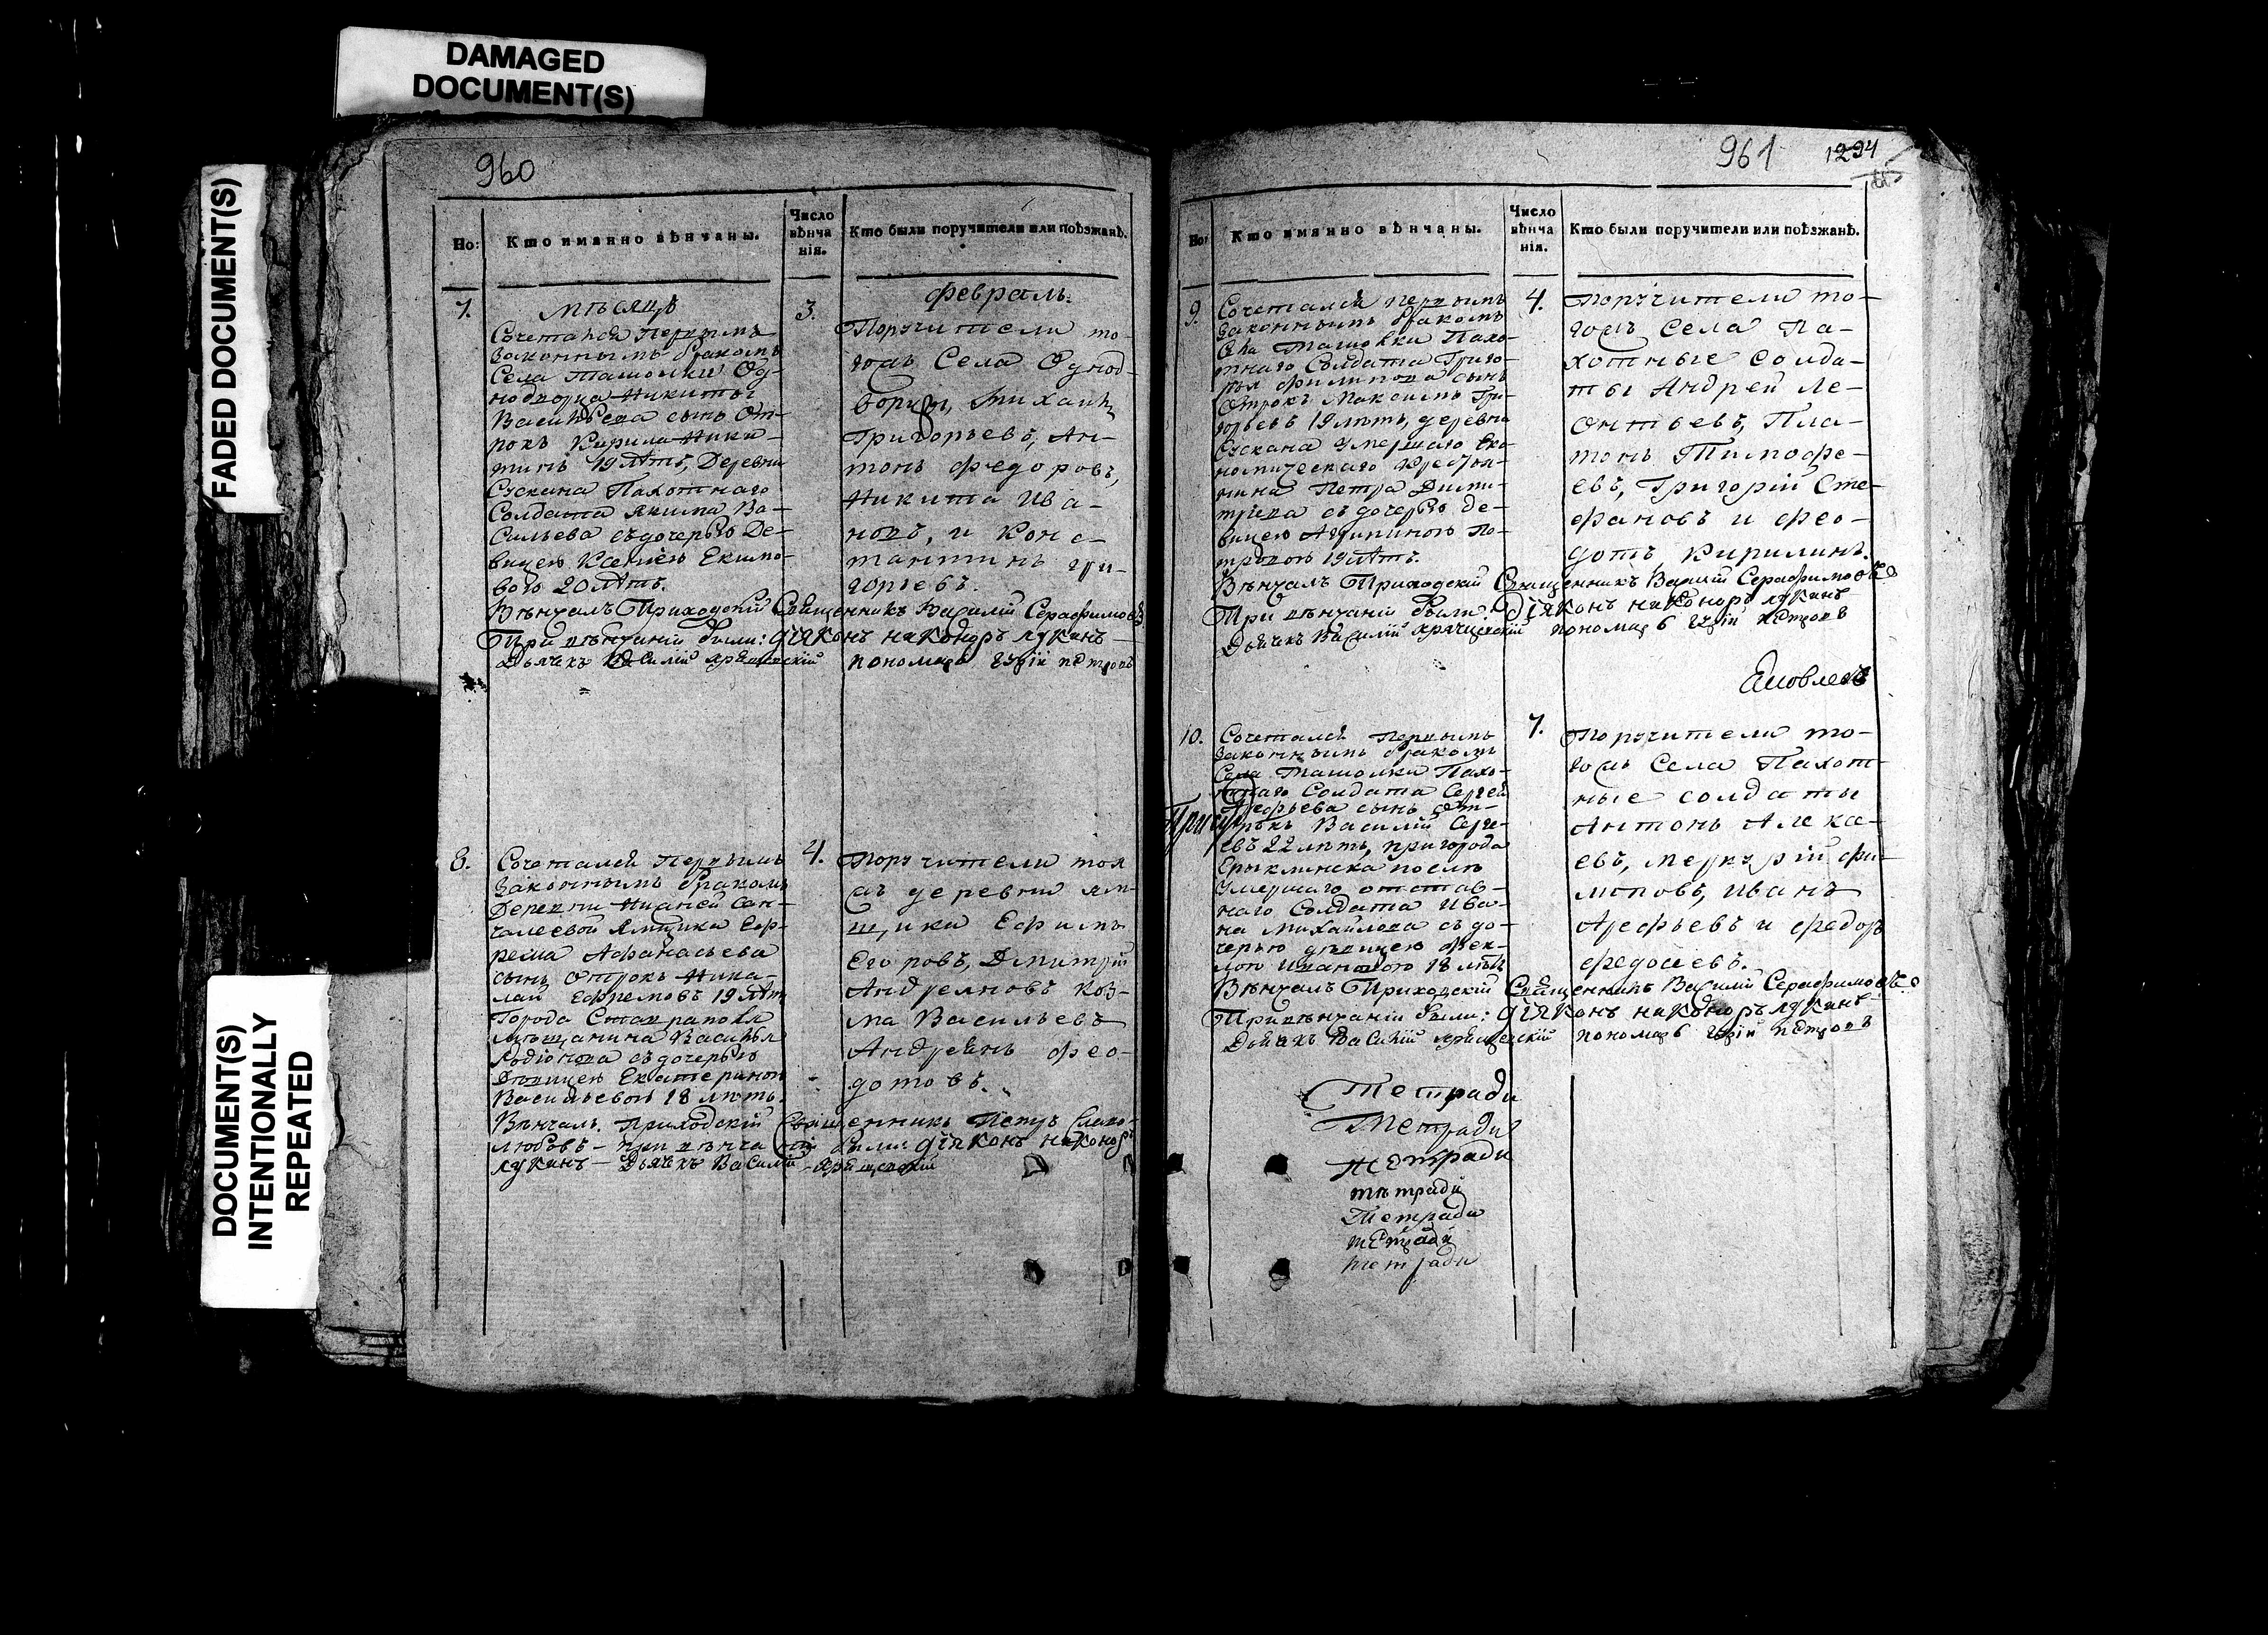 DAMAGED
DOCUMENT(S)
FADED DOCUMENT(S)
DOCUMENT(S)
INTENTIONALLY
REPEATED
960
Но:
Кто имянно вѣнчаны.
Число
вѣнча
нія.
Кто были поручители или поѣзжанѣ.
7.
мѣсяцъ
Сочетался первымъ
законнымъ бракомъ
Села Ташолки Од-
нодворца Никиты
Васильева сынъ От-
рокъ Кирила Ники-
тинъ 19 лѣтъ, Деревни
Сускана Пахотнаго
Солдата Якима Ва-
сильева съ дочерью Де-
вицею Ксениею Екимо-
вою 20 лѣтъ.
3.
февраль:
Поручители то-
гожъ Села Однод-
ворцы, Михаилъ
Григорьевъ, Ан-
тонъ Федоровъ,
Никита Ива-
новъ, и Конс-
тантинъ Гри-
горьевъ.
Вѣнчалъ Приходский Священникъ Василий Серафимовъ
При вѣнчаний были: діяконъ никоноръ лукинъ
Дьячекъ Василий пономарь гурій петровъ
8.
Сочетался Первымъ
Законнымъ бракомъ
Деревни Нижней Сан-
чалеевой Ямщика Еф-
рема Афанасьева
сынъ отрокъ Ника-
лай Ефремовъ 19 лѣтъ
Города Ставраполя
мѣщанина Василья
Родіонова съ дочерью
Девицею Екатериною
Васильевою 18 лѣтъ.
4.
Поручители тоя
жъ деревни ям-
щики Ефимъ
Егоровъ, Дмитрій
Андреяновъ Коз-
ма Васильевъ
Андреянъ Фео-
дотовъ.
Вѣнчалъ. Приходскій Священникъ Петръ
любовъ – при вѣнча были діяконъ никоноръ
лукинъ – Дьячекъ Василий
961
1294
Но:
Кто имянно вѣнчаны.
Число
вѣнча
нія.
Кто были поручители или поѣзжанѣ.
9.
Сочетался первымъ
законнымъ бракомъ
Села Ташолки Пахо-
тнаго Солдата Григо-
рья Филипова сынъ
Отрокъ Максимъ Гри-
горьевъ 19 лѣтъ, деревни
Сускана Умершаго Эко-
номическаго Крестья-
нина Петра Дмит-
триева съ дочерью де-
вицею Агрипиною Пе-
тровою 19 лѣтъ.
4.
Поручители то-
гожъ Села Па-
хотные солда-
ты Андрей Ле-
онтьевъ, Пла-
тонъ Тимофе-
евъ, Григорій Сте-
фановъ и Фео-
дотъ Кирилинъ.
Вѣнчалъ Приходский Священникъ Василій Серафимовъ
При вѣнчаний были: діяконъ никоноръ лукинъ
Дьячекъ Василий пономарь гурій петровъ
Яковлевъ
10.
Сочетался первымъ
законнымъ бракомъ
Села Ташолки Пахо-
тнаго Солдата Сергея
Арефьева сынъ от-
рокъ Василий Серге-
евъ 22 лѣтъ, пригорода
Ерыклинска послѣ
умершаго отстав-
наго Солдата Ива-
на Михайлова съ до-
черью девицею Фек-
лою Ивановою 18 лѣтъ
7.
Поручители то-
гожъ Села Пахот-
ные солдаты
Антонъ Алекс-
евъ, Меркурій Фи-
липовъ, Иванъ
Арефьевъ и Федоръ
Федосеевъ.
Вѣнчалъ Приходский Священникъ Василий Серафимовъ
При вѣнчаний были: діяконъ никоноръ лукинъ
Дьячекъ Василий пономарь гурій петровъ
Тетради
Тетради
тетради
тѣтради
Тетради
тетради
тетради